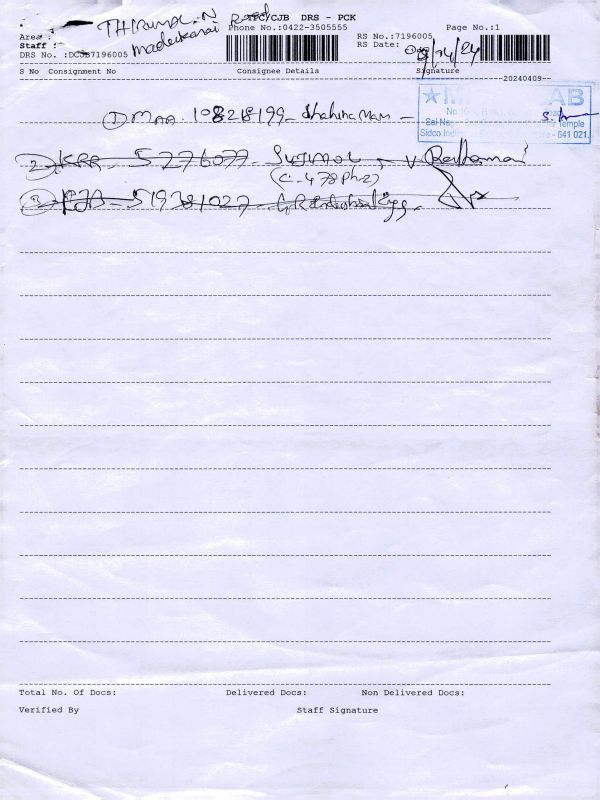 THIRUMAL.N Road TPC/CJB DRS - PCK
Madukarai Phone No.:0422-3505555 Page No.:1
Area : RS No.:7196005
Staff : RS Date: 09/04/24
DRS No. :DCJB7196005
S No Consignment No Consignee Details Signature
20240409
① MAA. 108218199 - Shahina Mam -
LAB
Sai Nagar Temple
Sidco Indu - 641 021.
② KRR - 5276077 - Sujimol - V
(C-478 Ph2)
③ 519381027 -
Total No. Of Docs: Delivered Docs: Non Delivered Docs:
Verified By Staff Signature